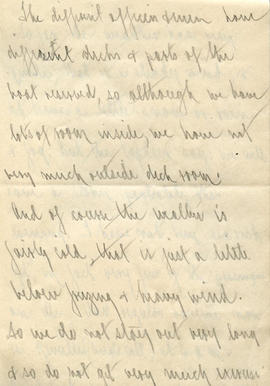 The different officers & men have
different decks & parts of the
boat reserved, so although we have
lots of room inside we have not
very much outside deck room.
And of course the weather is
fairly cold, that is just a little
below freezing & heavy wind.
So we do not stay out very long
& so do not get very much exercise